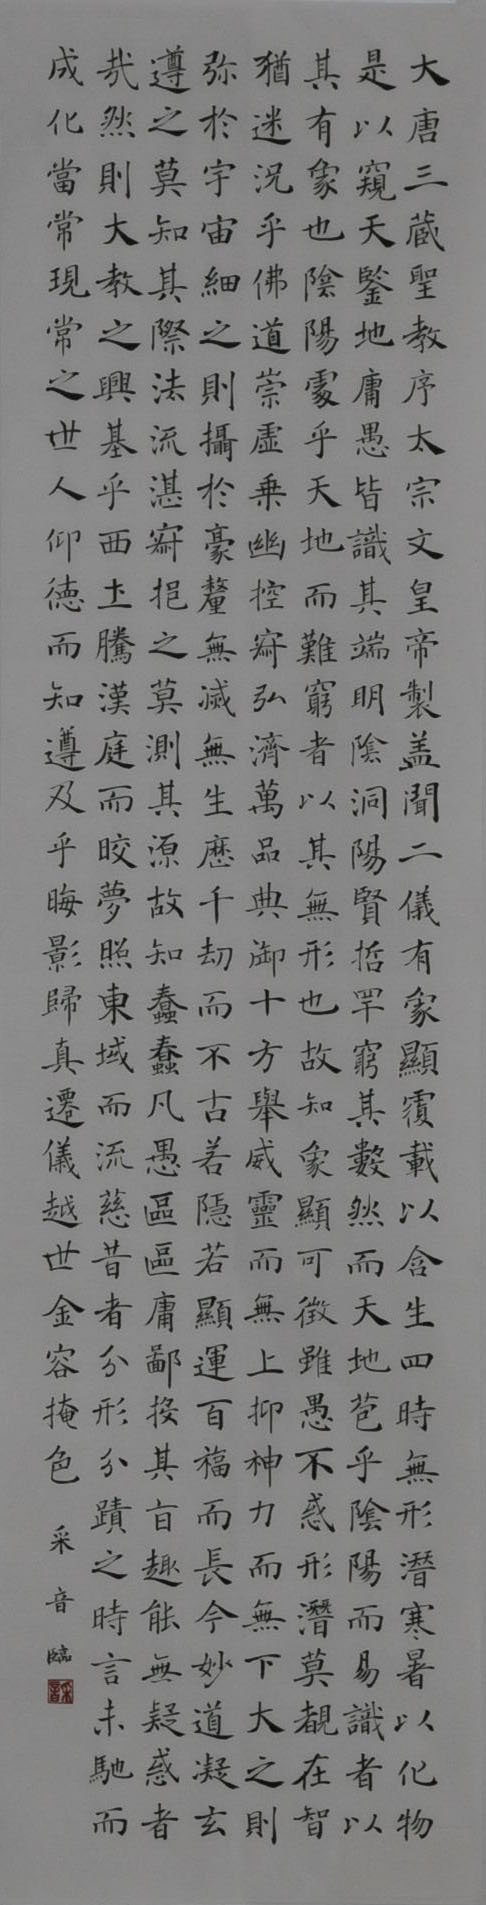 大唐三蔵聖教序太宗文皇帝製盖聞二儀有象顯覆載以含生四時無形潛寒暑以化物
是以窺天鑒地庸愚皆識其端明陰洞陽賢哲罕窮其數然而天地苞乎陰陽而易識者以
其有象也陰陽處乎天地而難窮者以其無形也故知象顯可徵雖愚不惑形潛莫覩在智
猶迷況乎佛道崇虛乗幽控寂弘濟萬品典御十方舉威靈而無上抑神力而無下大之則
弥於宇宙細之則攝於豪釐無滅無生歷千劫而不古若隱若顯運百福而長今妙道凝玄
遵之莫知其際法流湛寂挹之莫測其源故知蠢蠢凡愚區區庸鄙投其旨趣能無疑惑者
哉然則大教之興基乎西土騰漢庭而皎夢照東域而流慈昔者分形分蹟之時言未馳而
成化當常現常之世人仰德而知遵及乎晦影歸真遷儀越世金容掩色
采音臨